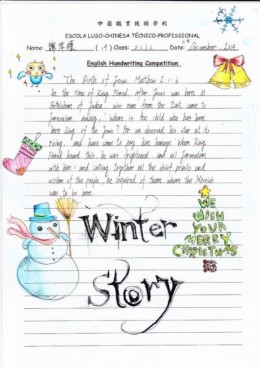 中葡職業技術學校
ESCOLA LUSO-CHINESA TÉCNICO-PROFISSIONAL
Name: Class: Date: December, 2014
English Handwriting Competition
The Birth of Jesus Matthew 2:1-6
In the time of King Herod, after Jesus was born in
Bethlehem of Judea, wise men from the East came to
Jerusalem asking, "Where is the child who has been
born king of the Jews? For we observed his star at its
rising, and have come to pay him homage. When King
Herod heard this, he was frightened, and all Jerusalem
with him; and calling together all the chief priests and
scribes of the people, he inquired of them where the Messiah
was to be born.
WE
WISH
YOU
MERRY
CHRISTMAS
Winter
Story